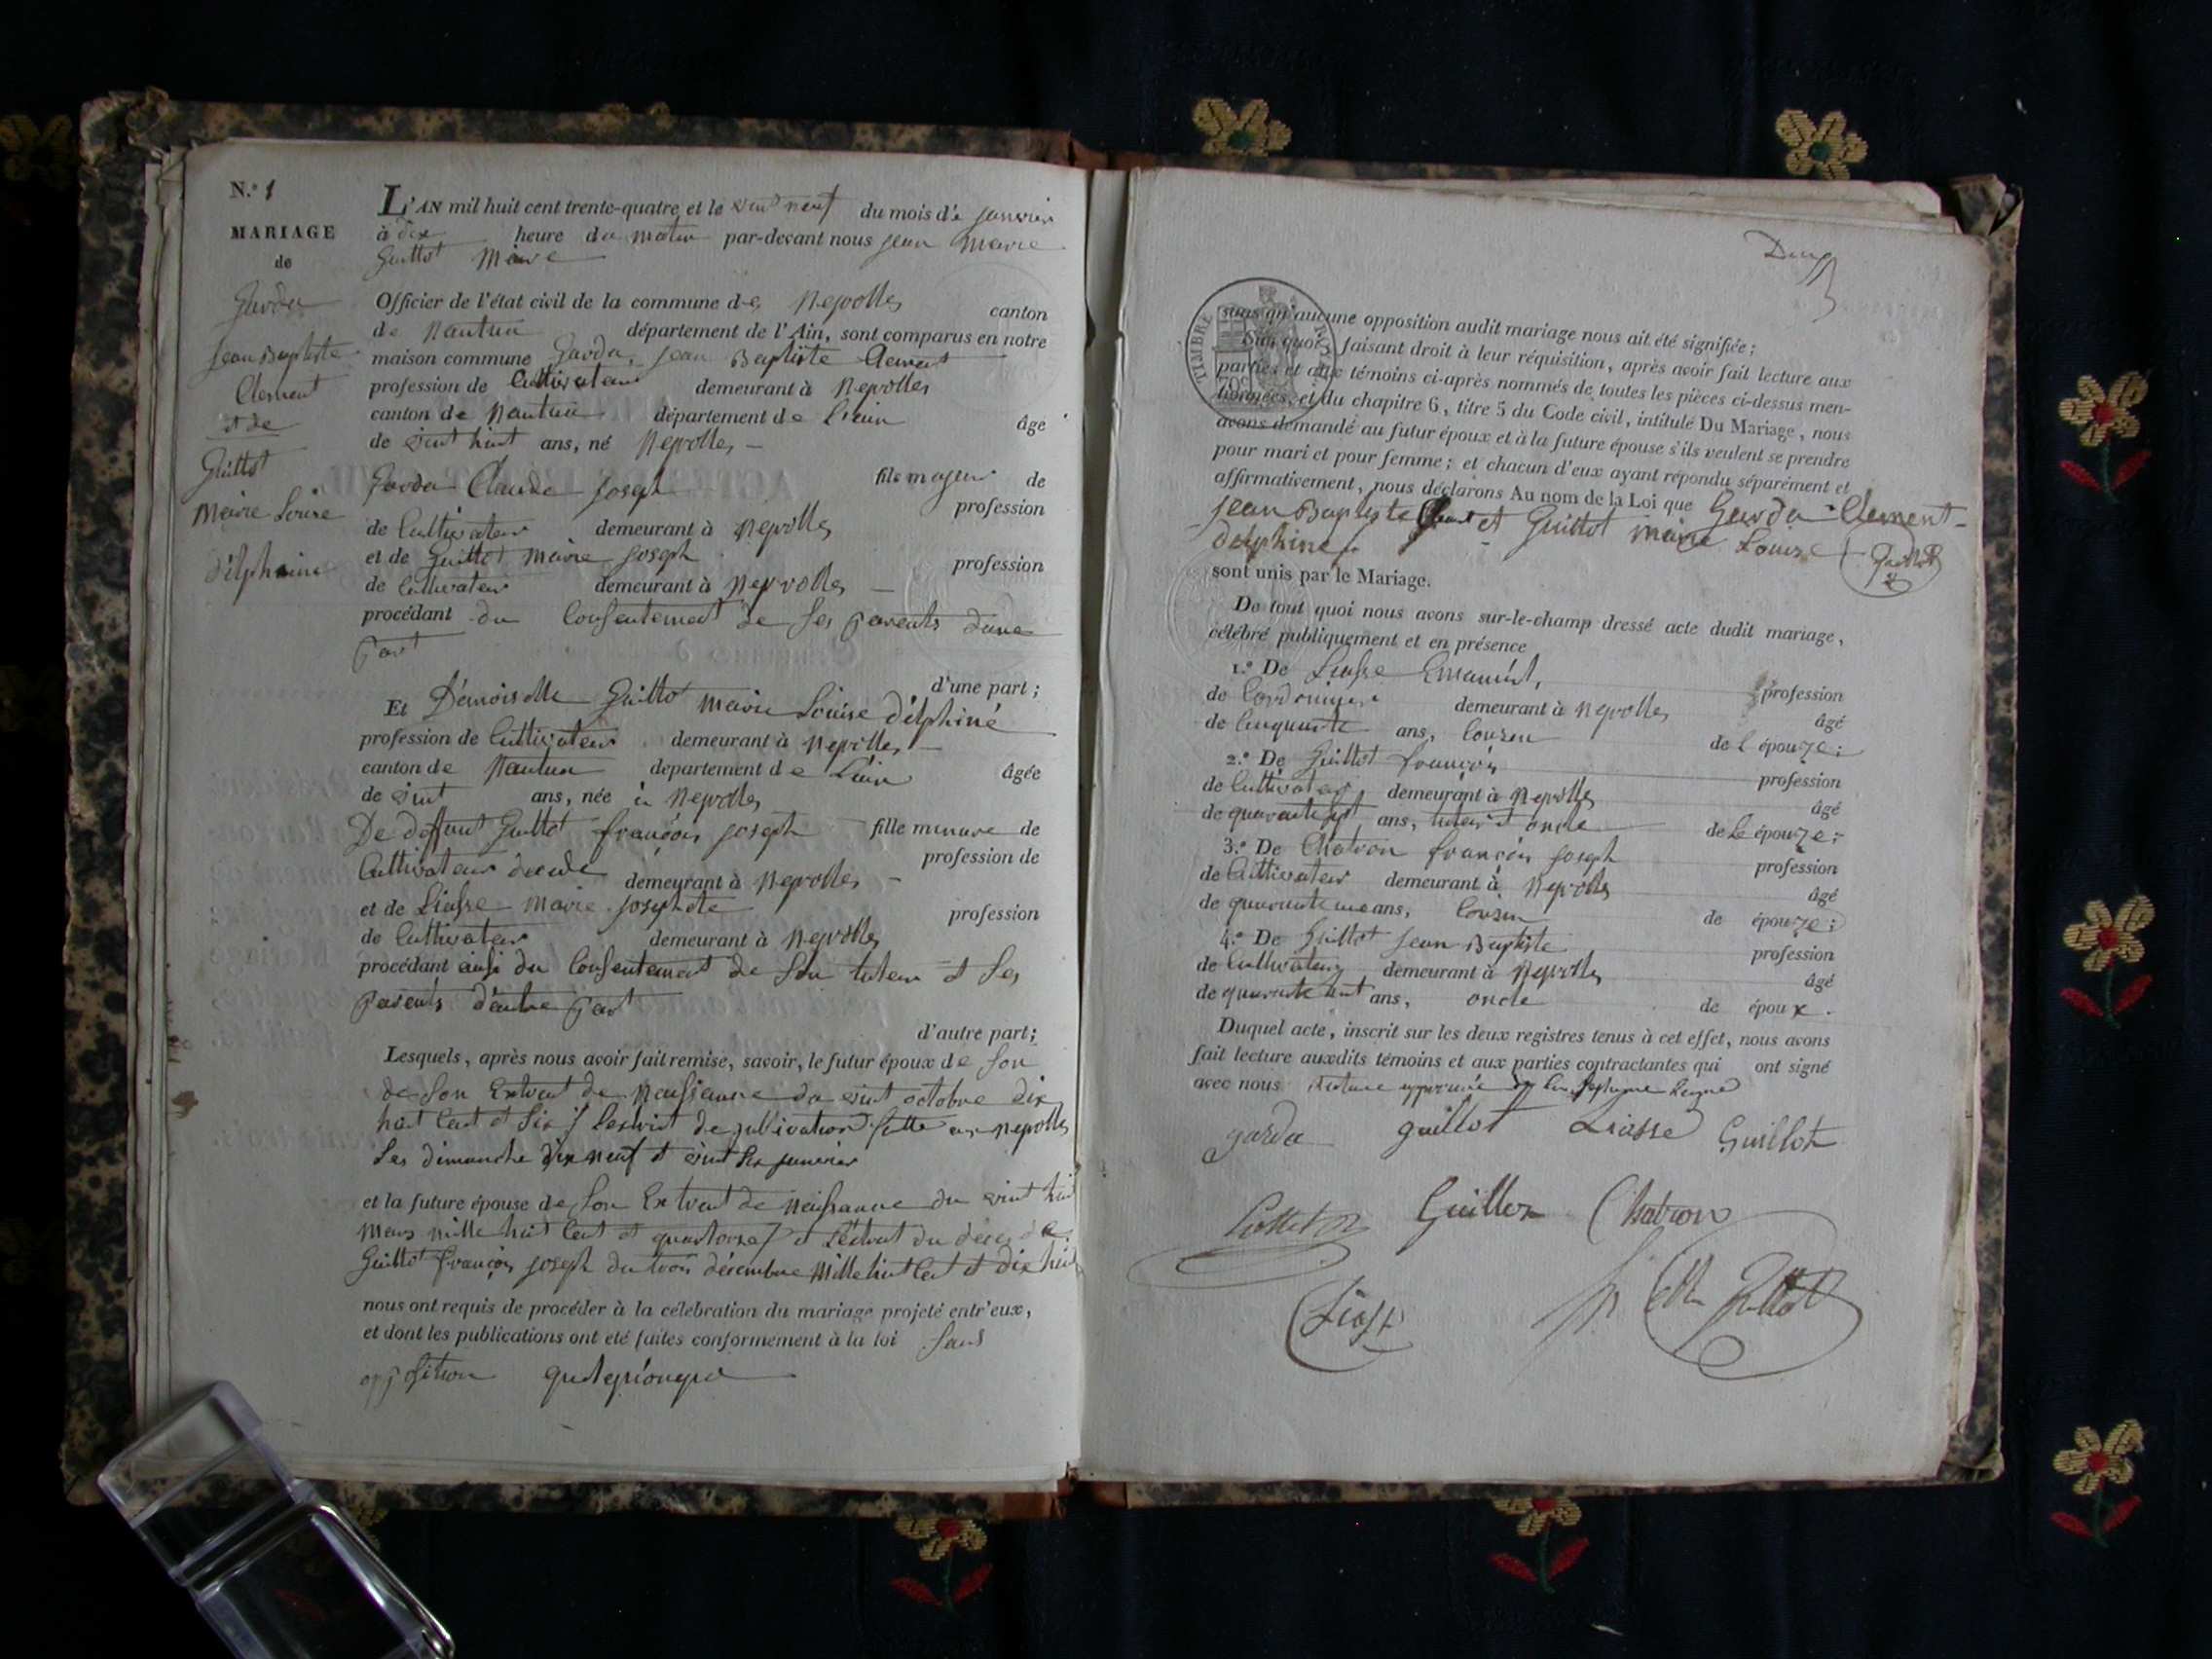 N.º 1
MARIAGE
de
Garda
Jean Baptiste
Clement
et de
Guillot
Marie Louise
délphine
L'AN mil huit cent trente-quatre et le vint neuf du mois de janvier
à dix heure du matin par-devant nous jean marie
Guillot Maire
Officier de l'état civil de la commune des Neyrolles canton
de Nantua département de l'Ain, sont comparus en notre
maison commune Garda, jean Baptiste Clement
profession de Cultivateur demeurant à Neyrolles
canton de Nantua département de l'ain âgé
de vint huit ans, né Neyrolles
Garda Claude joseph fils majeur de
profession
de Cultivateur demeurant à Neyrolles
et de Guillot marie joseph profession
de Cultivateur demeurant à Neyrolles
procédant du Consentement de ses parents d'une
part
d'une part ;
Et Démoiselle Guillot marie Louise délphine
profession de Cultivateur demeurant à Neyrolles
canton de Nantua département de L'ain âgée
de vint ans, née à Neyrolles
De deffunt Guillot françois joseph fille minure de
profession de
Cultivateur demeurant à Neyrolles
et de Liasse marie josephte profession
de Cultivateur demeurant à Neyrolles
procédant ainsi du Consentement de son tuteur et ses
parents d'autre part
d'autre part ;
Lesquels, après nous avoir fait remise, savoir, le futur époux de son
de son Extrait de Naissance du vint octobre dix
huit Cent et Six de publication faitte aux neyrolles
Les dimanche dix neuf et vint six janvier
et la future épouse de son Extrait de naissance du vint huit
mars mille huit Cent et quatorse et L'éxtrait du décés de
Guillot françois joseph du trois décembre mille huit Cent et dix huit
nous ont requis de procéder à la célébration du mariage projeté entr'eux,
et dont les publications ont été faites conformément à la loi sans
opposition
sans qu'aucune opposition audit mariage nous ait été signifiée ;
Sur quoi, faisant droit à leur réquisition, après avoir fait lecture aux
parties et aux témoins ci-après nommés de toutes les pièces ci-dessus men-
tionnées, et du chapitre 6, titre 5 du Code civil, intitulé Du Mariage, nous
avons demandé au futur époux et à la future épouse s'ils veulent se prendre
pour mari et pour femme ; et chacun d'eux ayant répondu séparément et
affirmativement, nous déclarons Au nom de la Loi que Garda Clement
jean Baptiste et Guillot marie Louise
délphine
sont unis par le Mariage.
De tout quoi nous avons sur-le-champ dressé acte dudit mariage,
célébré publiquement et en présence
1.º De Liasse profession
de Cordonnier demeurant à Neyrolles âgé
de Cinquante ans, Cousin de l'épouze ;
2.º De Guillot françois profession
de Cultivateur demeurant à Neyrolles âgé
de quarante sept ans, tuteur et oncle de Le épouze ;
3.º De Chatron françois joseph profession
de Cultivateur demeurant à Neyrolles âgé
de ans, Cousin de épouze ;
4.º De Guillot jean Baptiste profession
de Cultivateur demeurant à Neyrolles âgé
de ans, oncle de époux.
Duquel acte, inscrit sur les deux registres tenus à cet effet, nous avons
fait lecture auxdits témoins et aux parties contractantes qui ont signé
avec nous
garda guillot Liasse Guillot
Guillot Chatron
Liasse Guillot